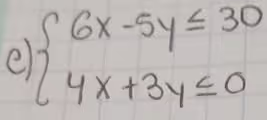 6x - 5y ≤ 30
e) {
4x + 3y ≤ 0